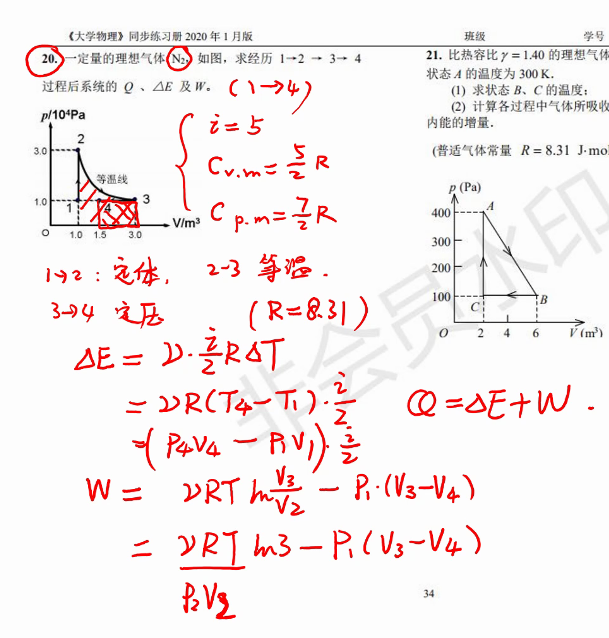 《大学物理》同步练习册 2020 年 1 月版
班级
学号
20. 一定量的理想气体 N₂, 如图，求经历 1→2 → 3→ 4
过程后系统的 Q 、△E 及 W。
(1→4)
p/10⁴Pa
2
3.0
等温线
1.0
1
4
3
V/m³
O
1.0
1.5
3.0
i=5
C v.m = 5/2 R
C p.m = 7/2 R
1→2 : 定体, 2-3 等温.
3→4 定压 (R=8.31)
ΔE = ν·i/2 RΔT
= νR(T₄-T₁)·i/2
=(P₄V₄ - P₁V₁)·i/2
Q=ΔE+W.
W= νRT ln V₃/V₂ - P₁·(V₃-V₄)
= νRT ln3 - P₁(V₃-V₄)
P₂V₂
21. 比热容比 γ = 1.40 的理想气体
状态 A 的温度为 300 K.
(1) 求状态 B、C 的温度;
(2) 计算各过程中气体所吸收
内能的增量.
(普适气体常量 R = 8.31 J·mol
p (Pa)
400
A
300
200
100
C
B
O
2
4
6
V (m³)
34
非会员水印